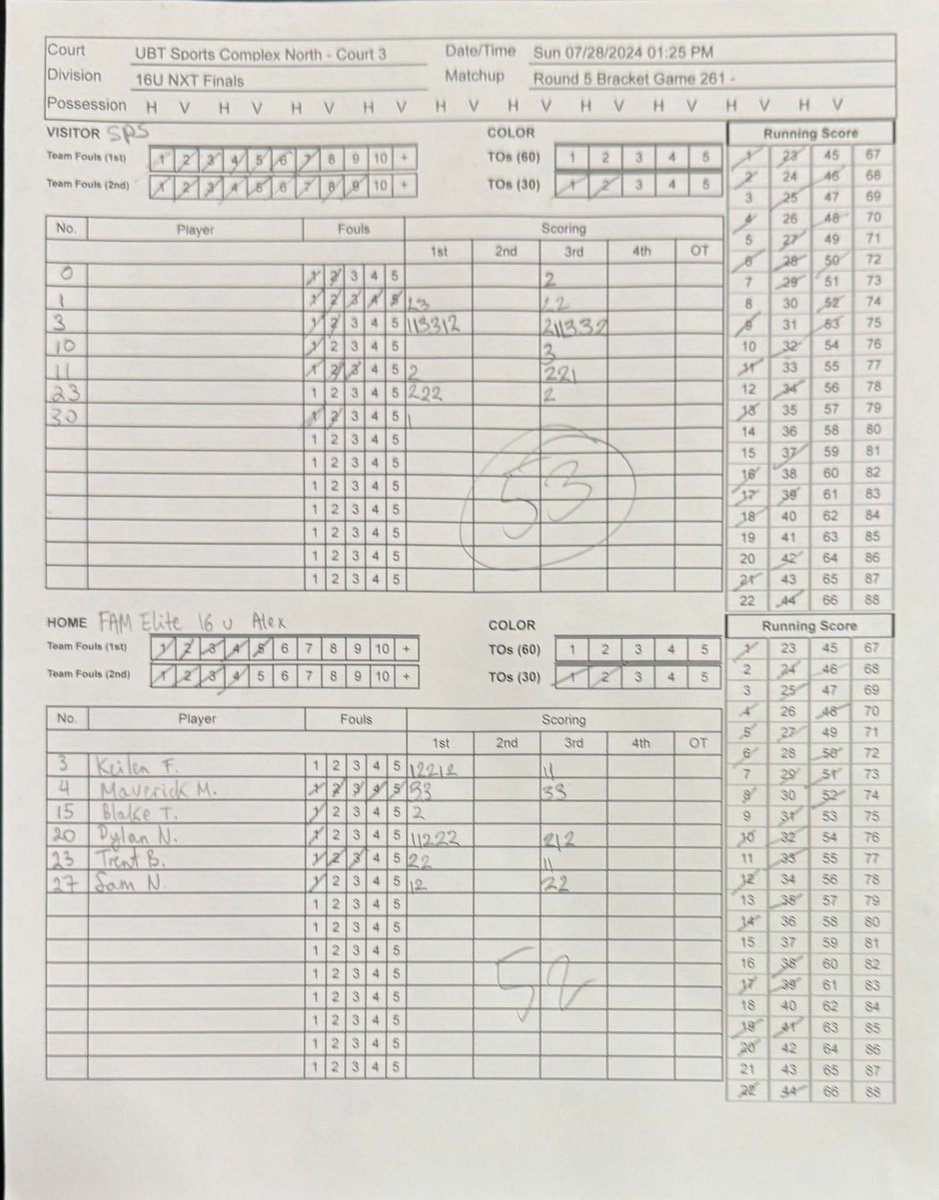 Court UBT Sports Complex North - Court 3 Date/Time Sun 07/28/2024 01:25 PM
Division 16U NXT Finals Matchup Round 5 Bracket Game 261 -
Possession H V H V H V H V H V H V H V H V H V H V
VISITOR SPS COLOR Running Score
Team Fouls (1st) 1 2 3 4 5 6 7 8 9 10 + TOs (60) 1 2 3 4 5 1 23 45 67
Team Fouls (2nd) 1 2 3 4 5 6 7 8 9 10 + TOs (30) 1 2 3 4 5 2 24 46 68
3 25 47 69
No. Player Fouls Scoring 4 26 48 70
1st 2nd 3rd 4th OT 5 27 49 71
6 28 50 72
0 1 2 3 4 5 2 7 29 51 73
1 1 2 3 4 5 23 22 8 30 52 74
3 1 2 3 4 5 113312 211332 9 31 53 75
10 1 2 3 4 5 3 10 32 54 76
11 1 2 3 4 5 2 221 11 33 55 77
23 1 2 3 4 5 222 2 12 34 56 78
30 1 2 3 4 5 1 13 35 57 79
1 2 3 4 5 14 36 58 80
1 2 3 4 5 15 37 59 81
1 2 3 4 5 53 16 38 60 82
1 2 3 4 5 17 39 61 83
1 2 3 4 5 18 40 62 84
1 2 3 4 5 19 41 63 85
1 2 3 4 5 20 42 64 86
1 2 3 4 5 21 43 65 87
22 44 66 88
HOME FAM Elite 16 U Alex COLOR Running Score
Team Fouls (1st) 1 2 3 4 5 6 7 8 9 10 + TOs (60) 1 2 3 4 5 1 23 45 67
Team Fouls (2nd) 1 2 3 4 5 6 7 8 9 10 + TOs (30) 1 2 3 4 5 2 24 46 68
3 25 47 69
No. Player Fouls Scoring 4 26 48 70
1st 2nd 3rd 4th OT 5 27 49 71
6 28 50 72
3 Keilen F. 1 2 3 4 5 12212 11 7 29 51 73
4 Maverick M. 1 2 3 4 5 33 33 8 30 52 74
15 Blake T. 1 2 3 4 5 2 9 31 53 75
20 Dylan N. 1 2 3 4 5 11222 212 10 32 54 76
23 Trent B. 1 2 3 4 5 22 11 11 33 55 77
27 Sam N. 1 2 3 4 5 12 22 12 34 56 78
1 2 3 4 5 13 35 57 79
1 2 3 4 5 14 36 58 80
1 2 3 4 5 15 37 59 81
1 2 3 4 5 52 16 38 60 82
1 2 3 4 5 17 39 61 83
1 2 3 4 5 18 40 62 84
1 2 3 4 5 19 41 63 85
1 2 3 4 5 20 42 64 86
21 43 65 87
22 44 66 88